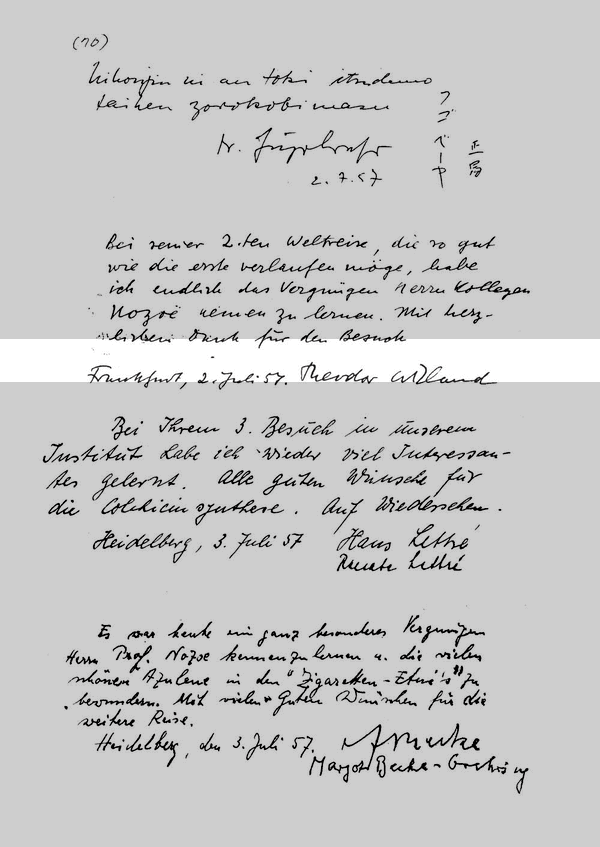 (70)
Nihonjin ni au toki itsudemo
taihen zorokobimasu
フゴベーヤ
正名
Dr.
2.7.57
Bei seiner 2.ten Weltreise, die so gut
wie die erste verlaufen möge, habe
ich endlich das Vergnügen Herrn Kollegen
Nozoë kennen zu lernen. Mit herz-
lichem Dank für den Besuch
Frankfurt, 2. Juli 57. Theodor Wieland
Bei Ihrem 3. Besuch in unserem
Institut habe ich wieder viel Interessan-
tes gelernt. Alle guten Wünsche für
die Colchicinsynthese. Auf Wiedersehen.
Heidelberg, 3. Juli 57 Hans Lettré
Renate Lettré
Es war heute ein ganz besonderes Vergnügen
Herrn Prof. Nozoe kennenzulernen u. die vielen
schönen Azulene in den "Zigaretten-Etui's" zu
bewundern. Mit vielen Guten Wünschen für die
weitere Reise.
Heidelberg, den 3. Juli 57.
Margot Becke-Goehring